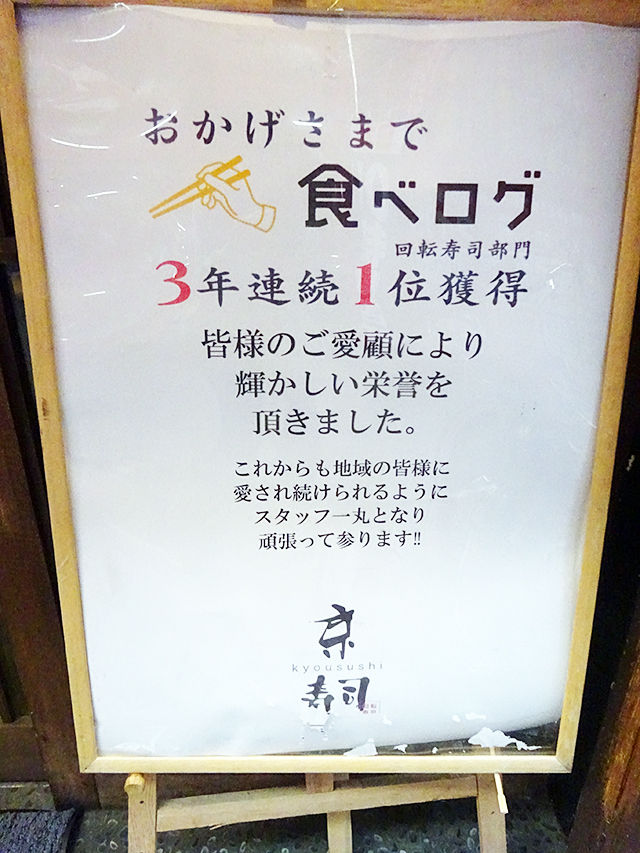 おかげさまで
食べログ
回転寿司部門
3年連続1位獲得
皆様のご愛顧により
輝かしい栄誉を
頂きました。
これからも地域の皆様に
愛され続けられるように
スタッフ一丸となり
頑張って参ります!!
京
kyousushi
寿司